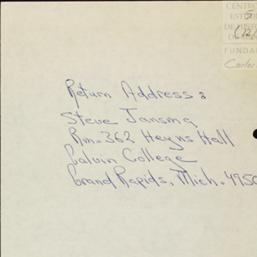 CENTR
EST
DE
FUNDA
Carlos
Return Address:
Steve Jansma
Rm. 362 Heyns Hall
Calvin College
Grand Rapids, Mich. 4950